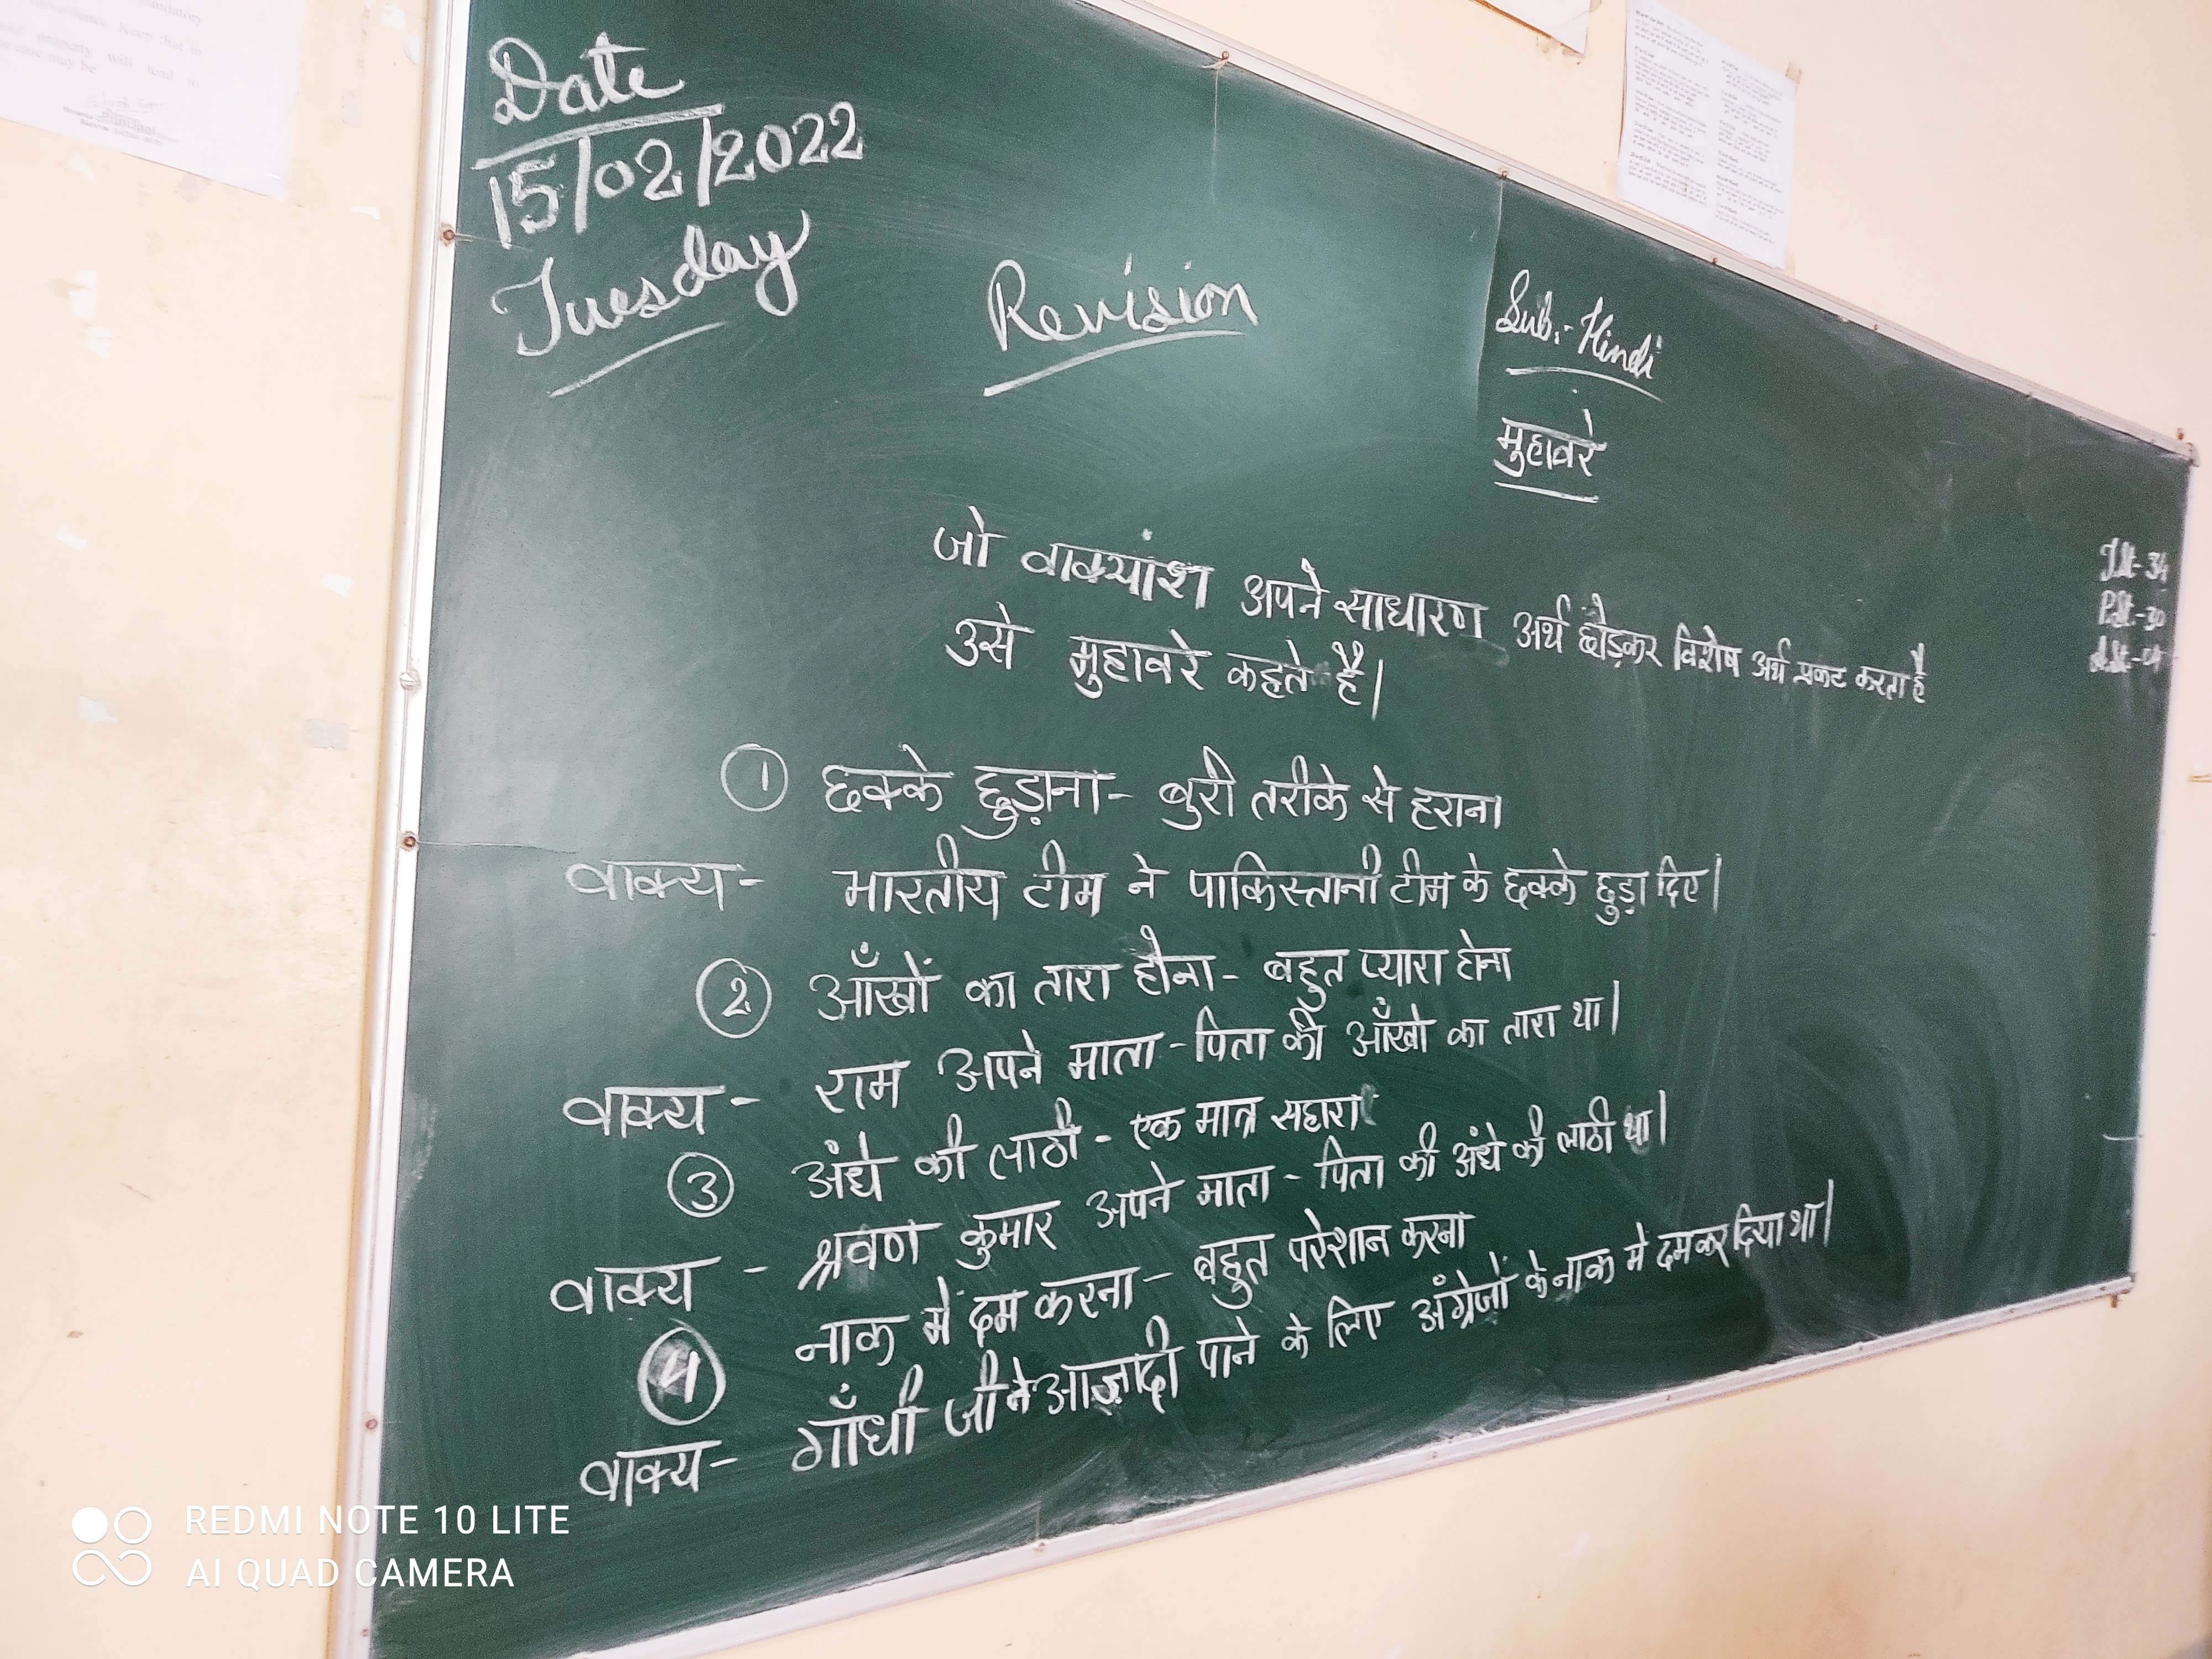 Date
15/02/2022
Tuesday
Revision
Sub:- Hindi
मुहावरे
जो वाक्यांश अपने साधारण अर्थ छोड़कर विशेष अर्थ प्रकट करता है
उसे मुहावरे कहते है।
T.St- 34
P.St.-30
A.St-04
① छक्के छुड़ाना- बुरी तरीके से हराना
वाक्य- भारतीय टीम ने पाकिस्तानी टीम के छक्के छुड़ा दिए।
② आँखों का तारा होना- बहुत प्यारा होना
वाक्य- राम अपने माता-पिता की आँखो का तारा था।
③ अंधे की लाठी- एक मात्र सहारा
वाक्य - श्रवण कुमार अपने माता-पिता की अंधे की लाठी था।
④ नाक में दम करना- बहुत परेशान करना
वाक्य- गाँधी जी ने आज़ादी पाने के लिए अंग्रेजों के नाक में दम कर दिया था।
REDMI NOTE 10 LITE
AI QUAD CAMERA